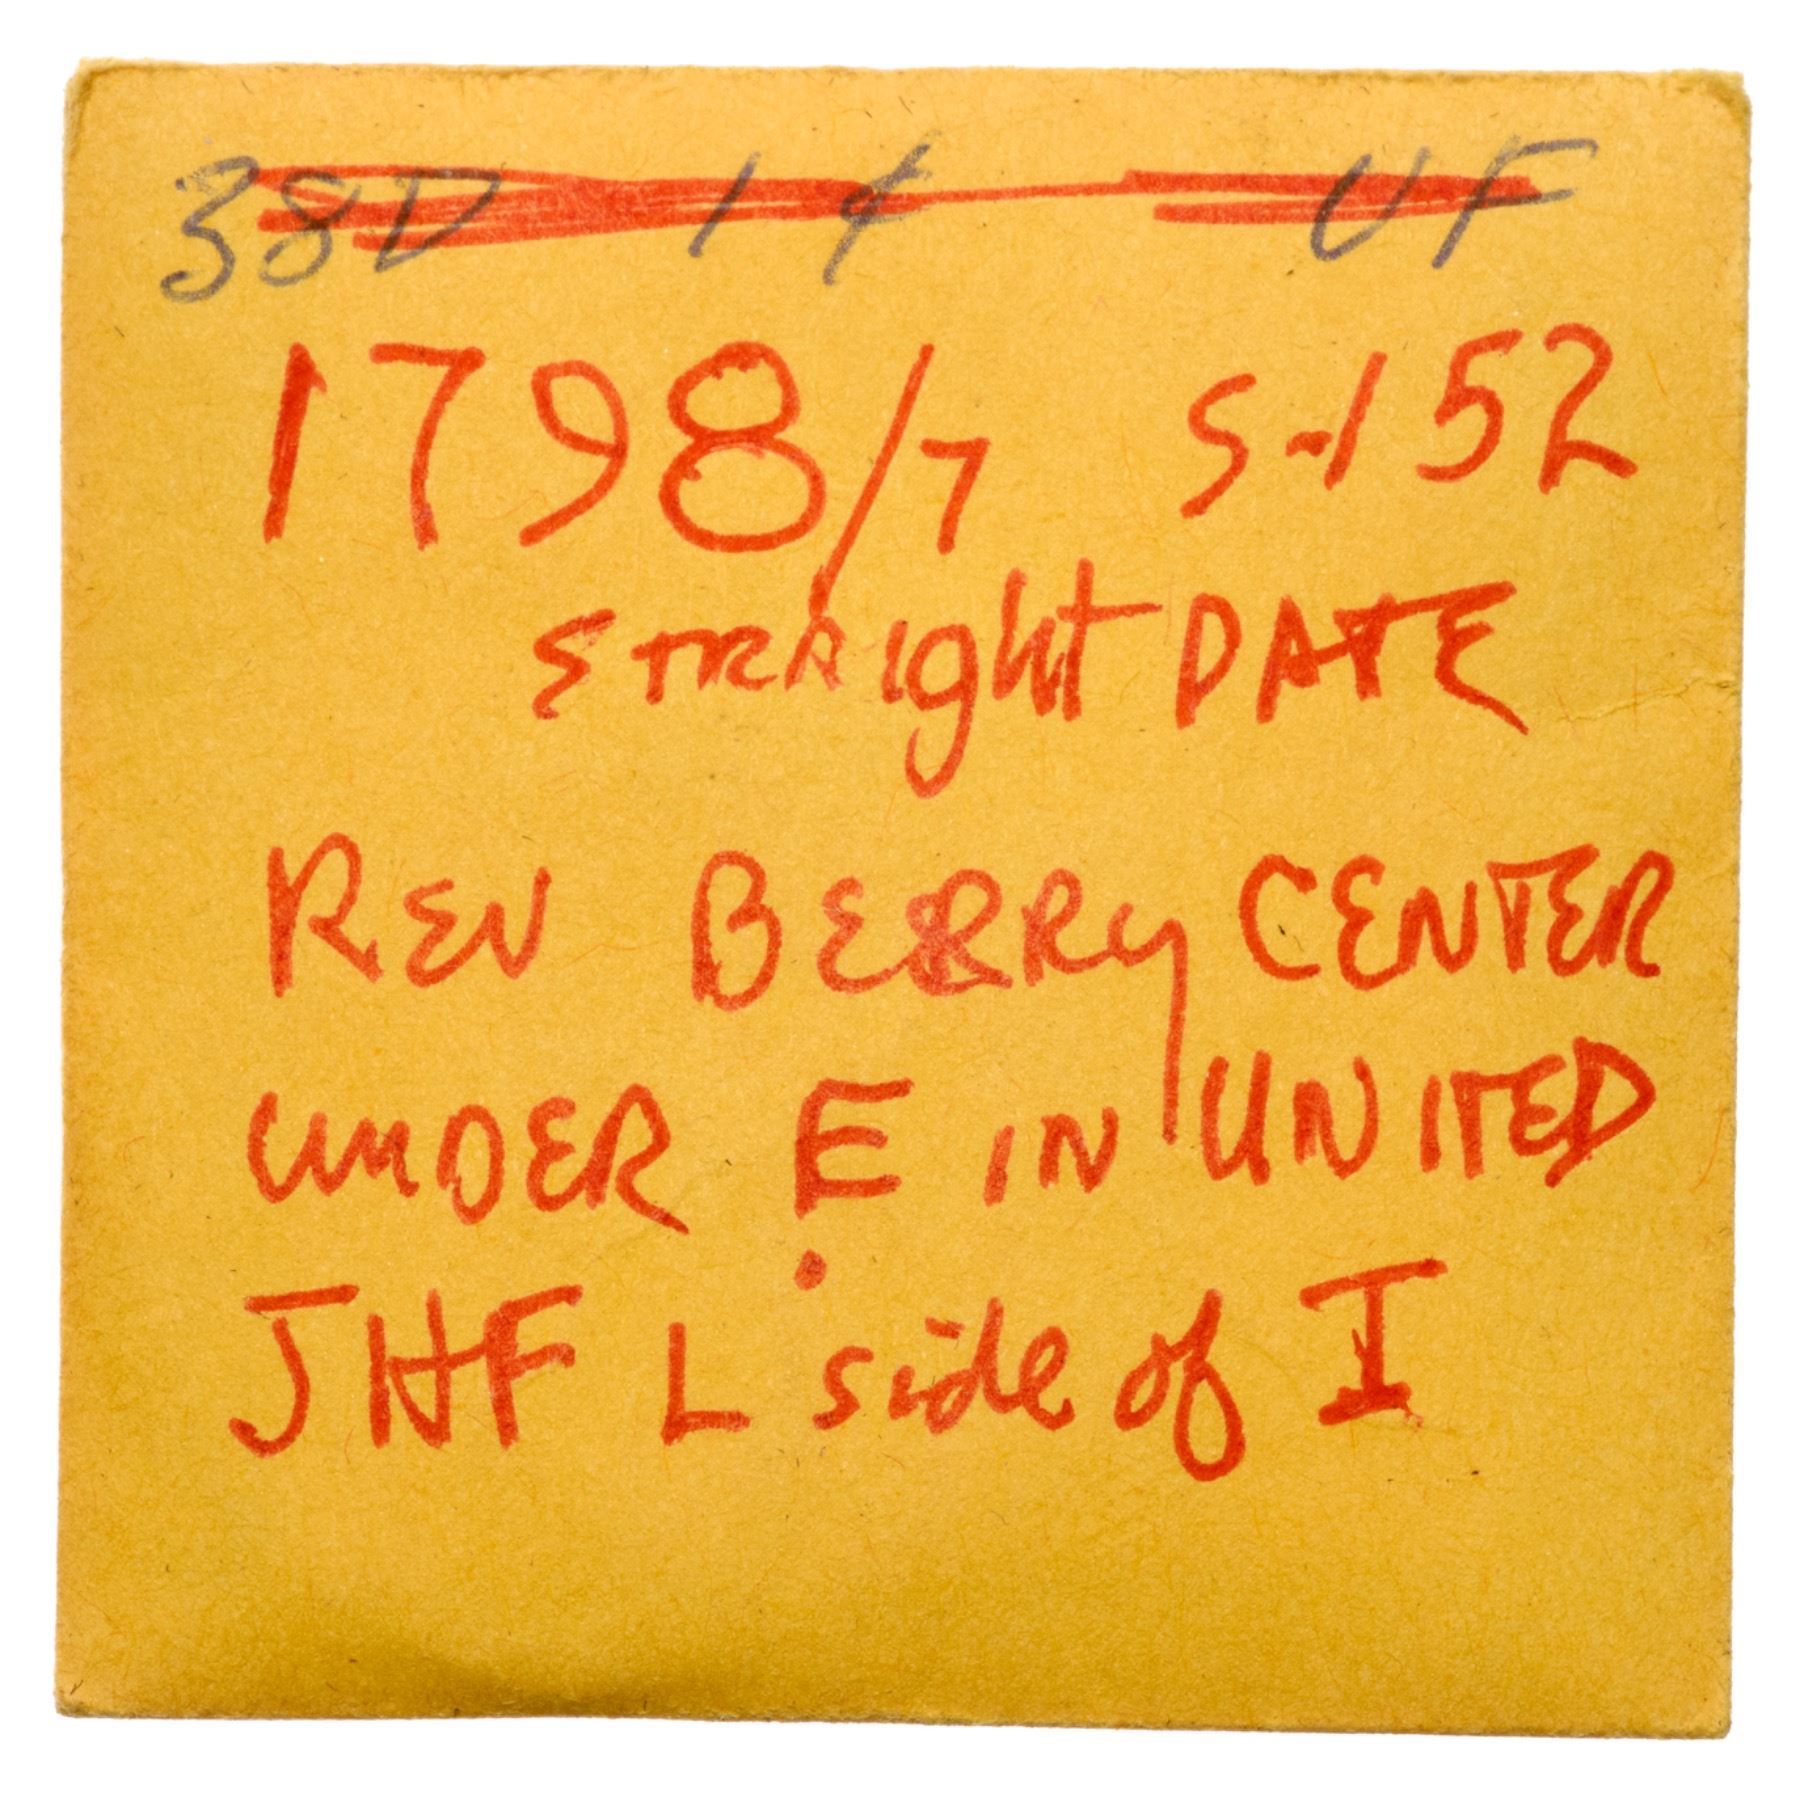 38D 1¢ UF
1798/7 S-152
STRAIght DATE
REV BERRY CENTER
UNDER E IN UNITED
JHF L side of I